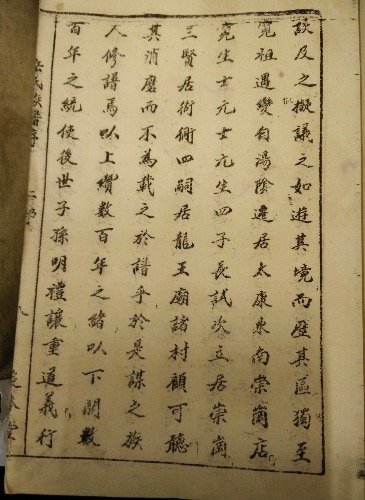 談及之擬議之如遊其境而歷其區獨至
寬祖遇變自湯陰遷居太康東南崇崗店
寬生士元士元生四子長試次立居崇崗
三賢居衙衕四嗣居龍王廟諸村顧可聽
其消磨而不為載之於譜乎於是謀之族
人修譜焉以上續數百年之緒以下開數
百年之統使後世子孫明禮讓重道義行
氏族譜序